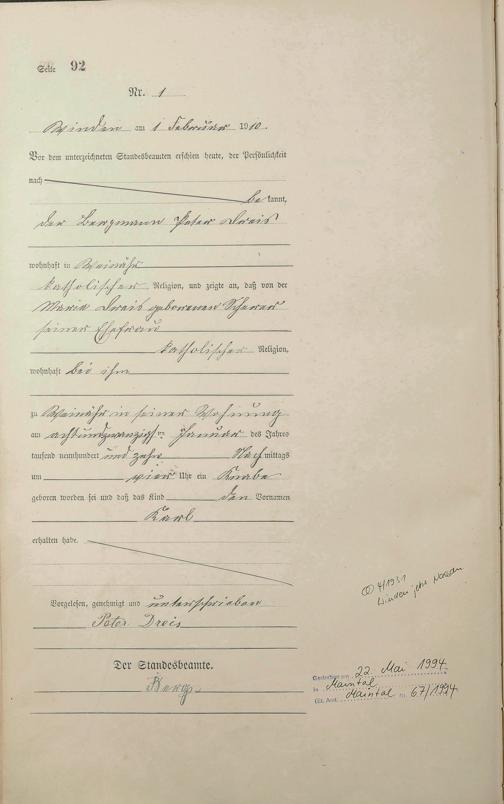 Seite 92
Nr. 1
Winden am 1 Februar 1910.
Vor dem unterzeichneten Standesbeamten erschien heute, der Persönlichkeit
nach
be kannt,
der Bergmann Peter Dreis
wohnhaft in Weinähr
katholischer Religion, und zeigte an, daß von der
Maria Dreis geborenen Scherer
seiner Ehefrau
katholischer Religion,
wohnhaft bei ihm
zu Weinähr in seiner Wohnung
am achtundzwanzigsten Januar des Jahres
tausend neunhundert und zehn Nachmittags
um vier Uhr ein Knabe
geboren worden sei und daß das Kind den Vornamen
Karl
erhalten habe.
Vorgelesen, genehmigt und unterschrieben
Peter Dreis
Der Standesbeamte.
Berg
4/1931
Winden jetzt Nassau
Gestorben am 22. Mai 1994
in Maintal
St. Amt Maintal Nr. 67/1994